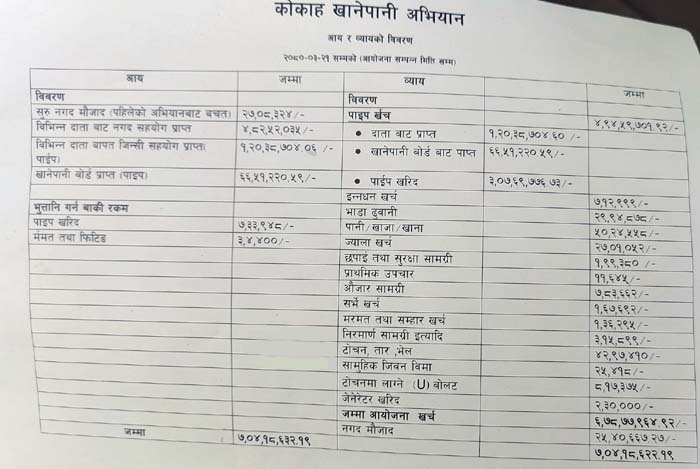 कोकाह खानेपानी अभियान
आय र व्यायको विवरण
२०८०-०३-२१ सम्मको (आयोजना सम्पन्न मिति सम्म)
आय जम्मा व्याय जम्मा
विवरण विवरण
सुरु नगद मौजाद (पहिलेको अभियानबाट बचत) २७,०८,३२४/- पाइप खर्च ४,९४,५९,७०१.९२/-
बिभिन्न दाता बाट नगद सहयोग प्राप्त ४,८२,५२,०३५/- • दाता बाट प्राप्त १,२०,३८,७०४.६० /-
बिभिन्न दाता बापत जिन्सी सहयोग प्राप्त( १,२०,३८,७०४.०६ /- • खानेपानी बोर्ड बाट पाप्त ६६,५१,२२०.५९/-
पाईप)
खानेपानी बोर्ड प्राप्त (पाइप) ६६,५१,२२०.५९/- • पाईप खरिद ३,०७,६९,७७६.७३/-
इन्नधन खर्च ७,१२,९९९/-
भुत्तानि गर्न बाकी रकम भाडा ढुवानी २९,९४,८७८/-
पाइप खरिद ७,३३,९४८/- पानी/खाजा/खाना ५०,२४,५५८/-
मंमत तथा फिटिङ ३,४,४००/- ज्याला खर्च २७,०१,०५२/-
छपाई तथा सुरक्षा सामग्री १,९९,३८० /-
प्राथमिक उपचार ११,६४५/-
औजार सामाग्री ७,८३,६६२/-
सर्भे खर्च १,६७,६९२/-
मरमत तथा सम्हार खर्च १,३६,२९५/-
निरमार्ण सामग्री इत्यादि ३,१५,८९९/-
टोचन, तार ,भेल ४२,९७,४१०/-
सामुहिक जिबन विमा २५,४१८/-
टोचनमा लाग्ने (U) बोल्ट ८,१७,३७५/-
जेनेरेटर खरिद २,३०,०००/-
जम्मा आयोजना खर्च ६,७८,७७,९६४.९२/-
नगद मौजाद २५,४०,६६७.२७/-
जम्मा ७,०४,१८,६३२.१९ ७,०४,१८,६२२.१९